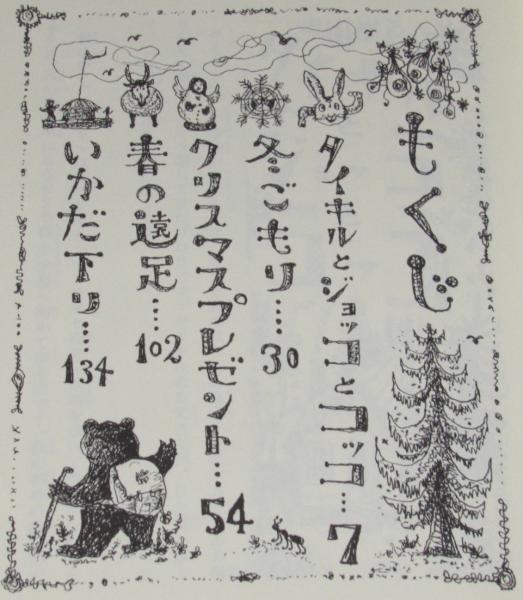 もくじ
タイキルとジョッコとコッコ…7
冬ごもり……30
クリスマスプレゼント…54
春の遠足……102
いかだ下り……134